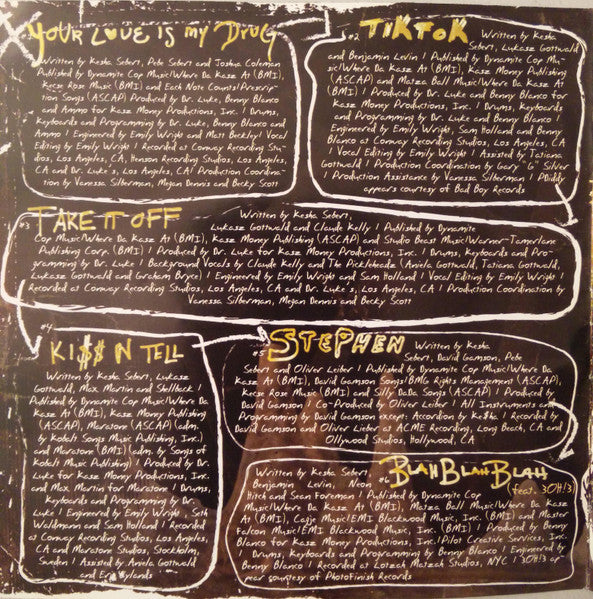 YOUR LOVE IS MY DRUG
Written by Kesha Sebert, Pete Sebert and Joshua Coleman
Published by Dynamite Cop Music/Where Da Kasz At (BMI),
Kecse Rose Music (BMI) and Each Note Counts/Prescrip-
tion Songs (ASCAP) Produced by Dr. Luke, Benny Blanco
and Ammo for Kasz Money Productions, Inc. | Drums,
Keyboards and Programming by Dr. Luke, Benny Blanco and
Ammo | Engineered by Emily Wright and Matt Beckley| Vocal
Editing by Emily Wright | Recorded at Conway Recording Stu-
dios, Los Angeles, CA, Henson Recording Studios, Los Angeles,
CA and Dr. Luke's, Los Angeles, CA| Production Coordina-
tion by Vanessa Silberman, Megan Dennis and Becky Scott
#2 TIKTOK Written by Kesha
Sebert, Lukasz Gottwald
and Benjamin Levin | Published by Dynamite Cop Mu-
sic/Where Da Kasz At (BMI), Kasz Money Publishing
(ASCAP) and Matza Ball Music/Where Da Kasz At
(BMI) | Produced by Dr. Luke and Benny Blanco for
Kasz Money Productions, Inc. | Drums, Keyboards
and Programming by Dr. Luke and Benny Blanco |
Engineered by Emily Wright, Sam Holland and Benny
Blanco at Conway Recording Studios, Los Angeles, CA
| Vocal Editing by Emily Wright | Assisted by Tatiana
Gottwald | Production Coordination by Gary "G" Silver
| Production Assistance by Vanessa Silberman | PDiddy
appears courtesy of Bad Boy Records
#3 TAKE IT OFF Written by Kesha Sebert,
Lukasz Gottwald and Claude Kelly | Published by Dynamite
Cop Music/Where Da Kasz At (BMI), Kasz Money Publishing (ASCAP) and Studio Beast Music/Warner-Tamerlane
Publishing Corp. (BMI) | Produced by Dr. Luke for Kasz Money Productions, Inc. | Drums, Keyboards and Pro-
gramming by Dr. Luke | Background Vocals by Claude Kelly and The Pickleheadz (Aniela Gottwald, Tatiana Gottwald,
Lukasz Gottwald and Graham Bryce) | Engineered by Emily Wright and Sam Holland | Vocal Editing by Emily Wright |
Recorded at Conway Recording Studios, Los Angeles, CA and Dr. Luke's, Los Angeles, CA | Production Coordination by
Vanessa Silberman, Megan Dennis and Becky Scott
#4
KI$$ N TELL
Written by Kesha Sebert, Lukasz
Gottwald, Max Martin and Shellback |
Published by Dynamite Cop Music/Where Da
Kasz At (BMI), Kasz Money Publishing
(ASCAP), Maratone (ASCAP) (adm.
by Kobalt Songs Music Publishing, Inc.)
and Maratone (BMI) (adm. by Songs of
Kobalt Music Publishing) | Produced by Dr.
Luke for Kasz Money Productions, Inc.
and Max Martin for Maratone | Drums,
Keyboards and Programming by Dr.
Luke | Engineered by Emily Wright, Seth
Waldmann and Sam Holland | Recorded
at Conway Recording Studios, Los Angeles,
CA and Maratone Studios, Stockholm,
Sweden | Assisted by Aniela Gottwald
and Eric Rylands
#5 STEPHEN Written by Kesha
Sebert, David Gamson, Pete
Sebert and Oliver Leiber | Published by Dynamite Cop Music/Where Da
Kasz At (BMI), David Gamson Songs/BMG Rights Management (ASCAP),
Kecse Rose Music (BMI) and Silly DaDa Songs (ASCAP) | Produced by
David Gamson | Co-Produced by Oliver Leiber | All Instruments and
Programming by David Gamson except: Accordion by Ke$ha | Recorded by
David Gamson and Oliver Leiber at ACME Recording, Long Beach, CA and
Ollywood Studios, Hollywood, CA
Written by Kesha Sebert, #6 BLAH BLAH BLAH
Benjamin Levin, Neon (feat. 3OH!3)
Hitch and Sean Foreman | Published by Dynamite Cop
Music/Where Da Kasz At (BMI), Matza Ball Music/Where Da Kasz
At (BMI), Cagje Music/EMI Blackwood Music, Inc. (BMI) and Master
Falcon Music/EMI Blackwood Music, Inc. (BMI) | Produced by Benny
Blanco for Kasz Money Productions, Inc./Pilot Creative Services, Inc.
| Drums, Keyboards and Programming by Benny Blanco | Engineered by
Benny Blanco | Recorded at Lotzah Matzah Studios, NYC | 3OH!3 ap-
pear courtesy of PhotoFinish Records